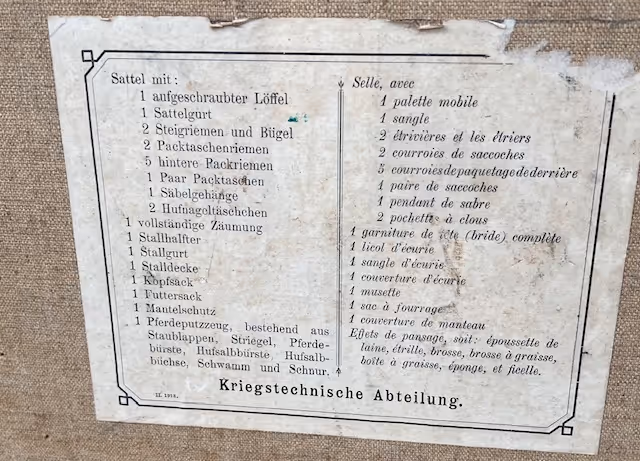 Sattel mit:
1 aufgeschraubter Löffel
1 Sattelgurt
2 Steigriemen und Bügel
2 Packtaschenriemen
5 hintere Packriemen
1 Paar Packtaschen
1 Säbelgehänge
2 Hufnageltäschchen
1 vollständige Zäumung
1 Stallhalfter
1 Stallgurt
1 Stalldecke
1 Kopfsack
1 Futtersack
1 Mantelschutz
1 Pferdeputzzeug, bestehend aus
Staublappen, Striegel, Pferde-
bürste, Hufsalbbürste, Hufsalb-
büchse, Schwamm und Schnur.
Selle, avec
1 palette mobile
1 sangle
2 étrivières et les étriers
2 courroies de saccoches
5 courroies de paquetage de derrière
1 paire de saccoches
1 pendant de sabre
2 pochettes à clous
1 garniture de tête (bride) complète
1 licol d'écurie
1 sangle d'écurie
1 couverture d'écurie
1 musette
1 sac à fourrage
1 couverture de manteau
Effets de pansage, soit: époussette de
laine, étrille, brosse, brosse à graisse,
boîte à graisse, éponge, et ficelle.
Kriegstechnische Abteilung.